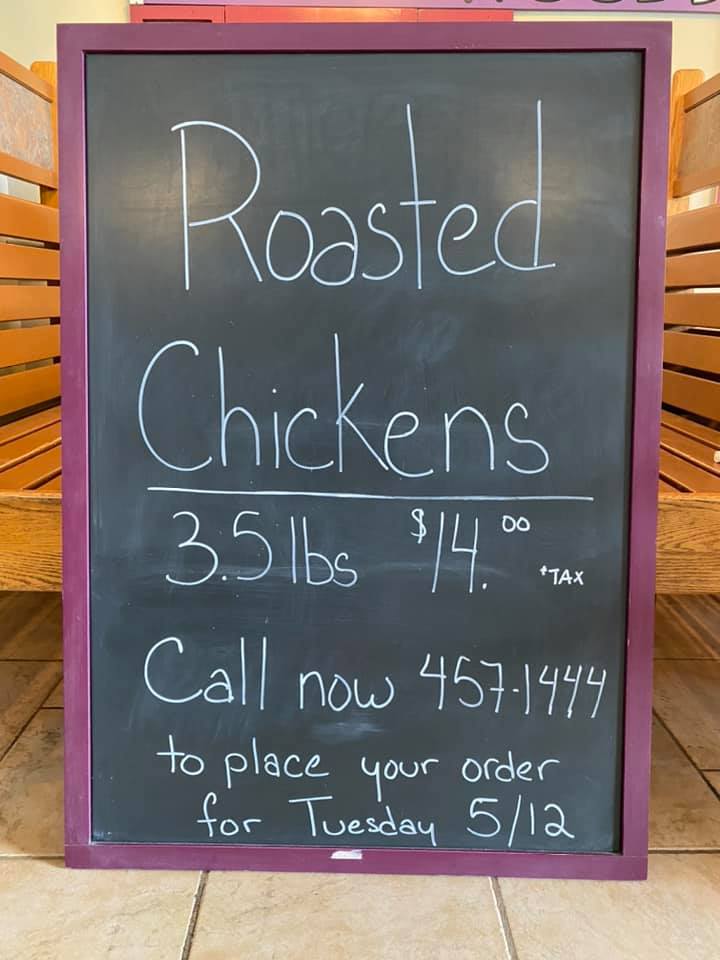 Roasted
Chickens
3.5 lbs $14.00 +TAX
Call now 457-1444
to place your order
for Tuesday 5/12